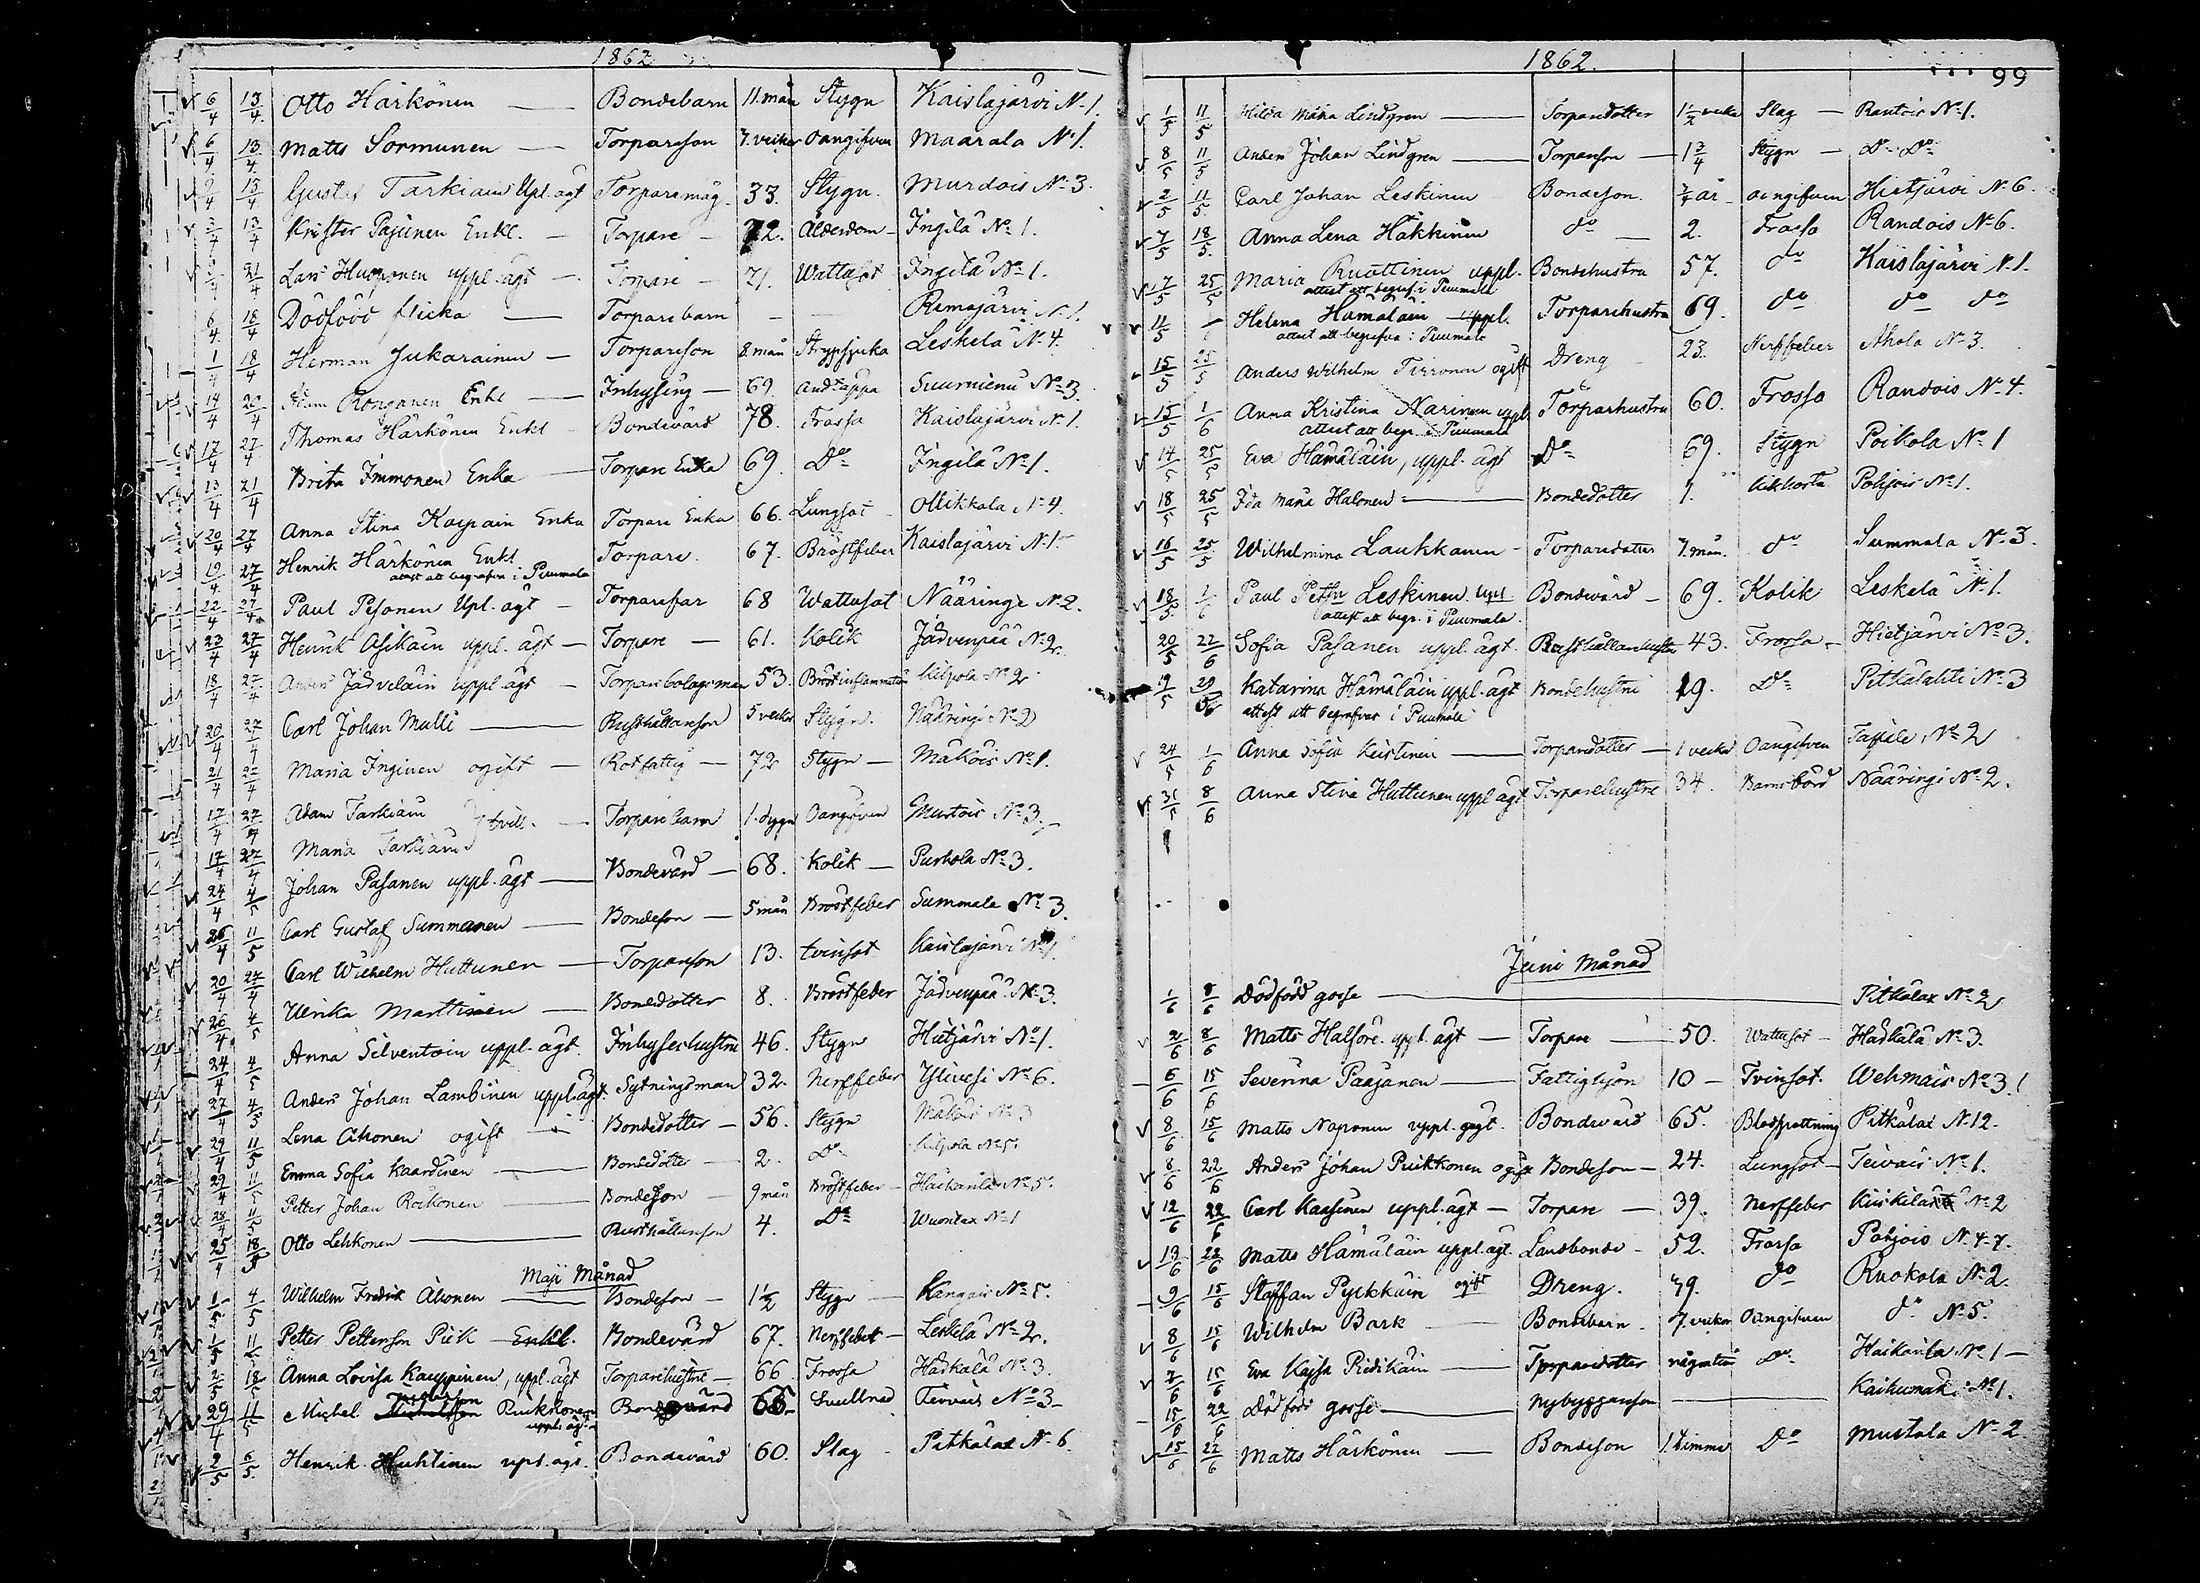 1862
6/4 13/4 Otto Härkönen — Bondebarn 11.mån Stygn Kaislajärvi N.1.
6/4 13/4 Matts Sormunen — Torpareson 7.veckor Oangifven Maarala N.1.
9/4 13/4 Gustaf Tarkiain Upl. ägt Torparemåg 33. Stygn. Murdois N.3.
3/4 13/4 Krister Pajunen Enkl. — Torpare — 72. Ålderdom — Ingilä No 1.
21/4 Lars Huopponen uppl. ägt — Torpare — 71. Wattusot Ingilä No 1.
6/4. 18/4 Dödfödd flicka — Torparebarn — Remojärvi N.1.
1/4 18/4 Herman Jukarainen — Torpareson 8.mån Strypsjuka Leskelä N.4.
14/4 20/4 Ronganen Enkl — Inhysing — 69. Andtäppa Suurnienü No 3.
17/4 27/4 Thomas Härkönen Enkl — Bondevärd 78. Frossa Kaislajärvi N.1.
13/4 21/4 Brita Immonen Enka — Torpare Enka 69. Do Ingilä No 1.
20/4 27/4 Anna Stina Karpain Enka Torpare Enka 66. Lungsot Ollikkala N.4.
19/4 27/4 Henrik Härkönen Enkl Torpare. 67. Bröstfeber Kaislajärvi N.1.
attest att begrafvas i Puumala
22/4 27/4 Paul Pesonen Upl. ägt — Torparefar 68 Wattusot Nääringi N.2.
23/4 27/4 Henrik Asikain uppl. ägt — Torpare — 61. Kolik Jädvenpää No 2.
18/4 27/4 Anders Jädvelain uppl ägt — Torparebolagsman 53. Bröstinflammation Kilpola No 2
20/4 27/4 Carl Johan Mulli — Rusthållareson 5 veckor Stygn. Nääringi No 2
21/4 27/4 Maria Inginen ogift — Rotfattig — 72 Stygn — Mäkois No 1.
17/4 27/4 Adam Tarkiain } tvill. — Torparebarn 1.dygn Oangifven Murtois No 3.
17/4 27/4 Maria Tarkiain
24/4 4/5 Johan Pasanen uppl. ägt — Bondevärd — 68. Kolik — Purhola No 3.
26/4 11/5 Carl Gustaf Summanen — Bondeson — 5 mån Bröstfeber Summala No 3.
20/4 27/4 Carl Wilhelm Huttunen — Torpareson 13. tvinsot Kaislajärvi No 1.
26/4 4/5 Ulrika Marttinen — Bondedotter 8. Bröstfeber Jädvenpää N.3.
24/4 4/5 Anna Silventoin uppl. ägt. Inhyseshustru 46. Stygn Hietjärvi No 1.
27/4 4/5 Anders Johan Lambinen uppl. ägt. Sytningsman 32. Nerffeber Ylivesi No 6.
29/4 11/5 Lena Ahonen ogift — Bondedotter — 56. Stygn Mäkois No 3
29/4 11/5 Emma Sofia Kaartinen — Bondedotter — 2. Do Kilpola No 5.
28/4 11/5 Petter Johan Roikonen — Bondeson — 9 mån Bröstfeber — Haikanla No 5.
25/4 18/5 Otto Lehkonen — Rusthållareson 4. Do Wuontax No 1
Maji Månad
1/5 4/5 Wilhelm Fredrik Ahonen — Bondeson — 1½ Stygn — Kangais No 5.
1/5 11/5 Petter Pettersson Piik — Enkl. Bondevärd 67. Nerffeber — Leskelä No 2.
2/5 18/5 Anna Lovisa Kauppinen, uppl. ägt Torparehustru — 66 Frossa Hadkala No 3.
29/4 11/5 Michel Puikkonen Bondevärd 65 Svullnad Teivais No 3 —
uppl. ägt.
2/5 6/5. Henrik Huhtinen upl. ägt. Bondevärd 60. Slag — Pitkälax N.6.
1862.
99
1/5 11/5 Hilda Maria Lindgren — Torparedotter 1½ vecka Slag — Rantois No 1.
8/5 11/5 Anders Johan Lindgren — Torpareson — 1¾ Stygn — Do Do
2/5 11/5. Carl Johan Leskinen Bondeson. ¾ år oangifven Hietjärvi N.6.
7/5 18/5. Anna Lena Häkkinen do — 2. Frossa Randois N.6.
17/5 25/5 Maria Ruottinen uppl. Bondehustru 57. do Kaislajärvi N.1.
attest att begraf. i Puumala
11/5 Helena Hämäläin uppl. Torparehustru 69. do do do
attest att begrafva i Puumala
15/5 25/5 Anders Wilhelm Tirronen ogift Dreng 23. Nerffeber Ahola No 3.
15/5 1/6 Anna Kristina Narinen uppl Torparhustru 60. Frossa Randois No 4.
attest att begr. i Puumala
14/5 25/5 Eva Hämäläin, uppl. ägt Do 69. Stygn Poikola No 1
18/5 25/5 Ida Maria Halonen — Bondedotter 7. Kikhosta Pohjois No 1.
16/5 25/5 Wilhelmina Laukkanen — Torparedotter 7.mån. do Summala No 3.
18/5. 1/6 Paul Petter Leskinen upl Bondevärd — 69. Kolik Leskelä No 1.
attest att begr. i Puumala.
20/5 22/6 Sofia Pasanen uppl. ägt. Rusthållarehustru 43. Frossa — Hietjärvi No 3.
19/5 29/5 Katarina Hämäläin uppl. ägt Bondehustru 49. Do Pitkälahti No 3
attest att begrafvas i Puumala
24/5 1/6 Anna Sofia Keistinen — Torparedotter — 1 vecka Oangifven Tapale No 2
31/5 8/6 Anna Stina Huttunen uppl ägt Torparehustru 34. Barnsbörd Nääringi No 2.
Juni Månad
1/6 8/6 Dödfödd gosse — Pitkälax No 2
2/6 8/6 Matts Halfore. uppl. ägt — Torpare — 50. Wattusot — Hadkala No 3.
6/6 15/6 Severina Paajanen — Fattighjon 10 — Tvinsot. Wehmais No 3.
8/6 15/6 Matts Naponen uppl. ägt. Bondevärd 65. Blodspottning Pitkälax N.12.
8/6 22/6 Anders Johan Puikkonen ogift Bondeson — 24. Lungsot — Teivais No 1.
12/6 22/6 Carl Kaasinen uppl. ägt — Torpare — 39. Nerffeber Kiiskilä No 2
13/6 22/6 Matts Hämäläin uppl. ägt. Landbonde — 52. Frossa Pohjois N.4-7.
9/6 15/6 Staffan Pyckkäin ogift Dreng. 49. do Ruokola No 2.
8/6 15/6 Wilhelm Bark — Bondebarn — 7.veckor Oangifven do No 5.
7/6 15/6 Eva Kajsa Pidikäin — Torparedotter Do Haikanla No 1 —
15/6 22/6 Dödfödd gosse — Nybyggareson — Kaihumäki No 1.
15/6 22/6 Matts Härkönen — Bondeson 1.timme Do Mustala No 2.